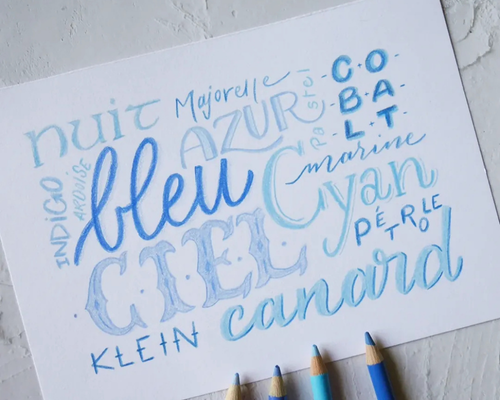 nuit
Majorelle
pastel
-C·O-
-B·A-
-L·T-
AZUR
INDIGO
ARDOISE
bleu
marine
Cyan
PÉTROLE
CIEL
canard
KLEIN